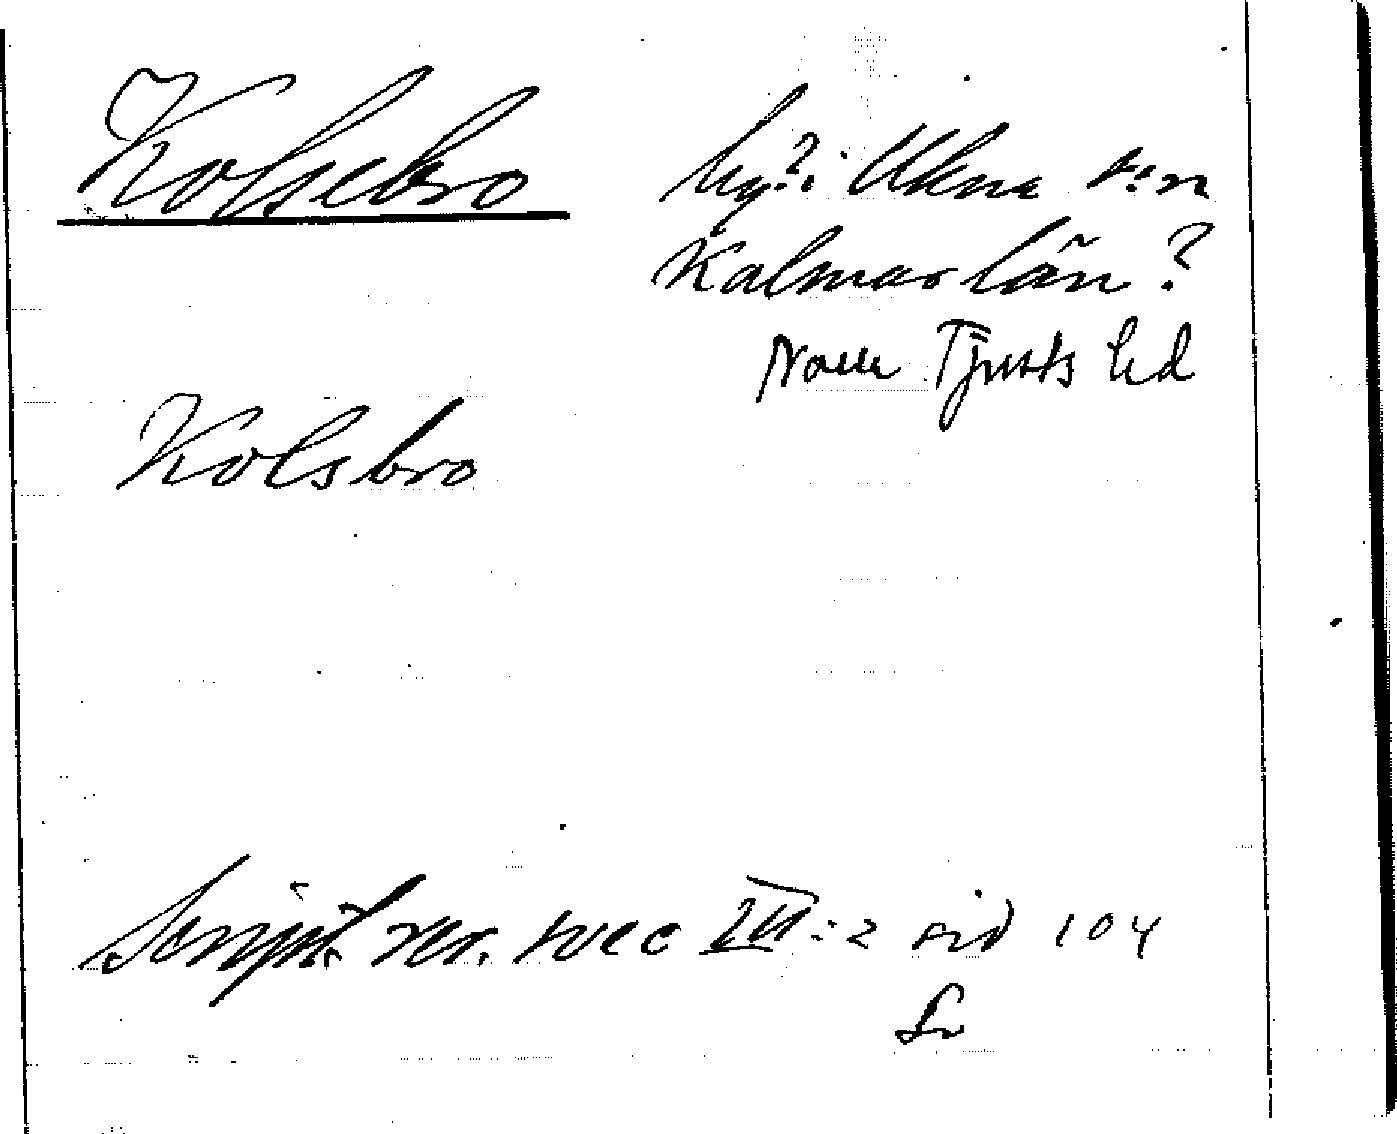 Kolsebro by? i Ukna s:n
Kalmar län?
Norra Tjusts hd
Kolsbro
Script. rer. svec III:2 sid 104